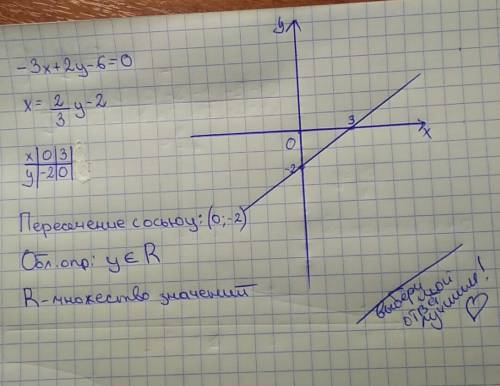 -3x+2y-6=0
x= 2/3 y-2
x | 0 | 3
y | -2 | 0
Пересечение с осью y: (0; -2)
Обл. опр: y ∈ R
R-множество значений
y
3
0
x
-2
выбери
мой
отве
лучшим!